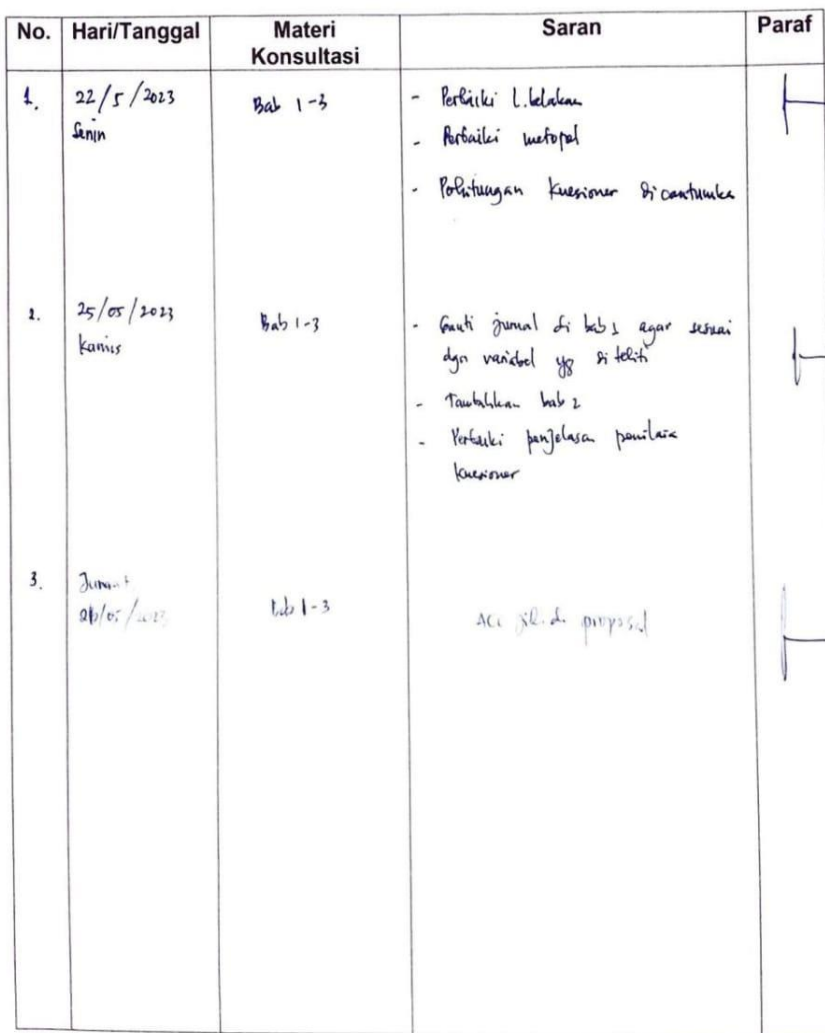 No. Hari/Tanggal Materi Konsultasi Saran Paraf
1. 22/5/2023 Bab 1-3 - Perbaiki l.belakan
Senin - Perbaiki metopel
- Kuesioner dicantumka
2. 25/05/2023 Bab 1-3 - Ganti jurnal di bab 1 agar sesuai
Kamis dgn variabel yg diteliti
- Tambahkan bab 2
- Perbaiki penjelasa penilaia
kuesioner
3. Jumat
26/05/2023 Bab 1-3 ACC jilid proposal